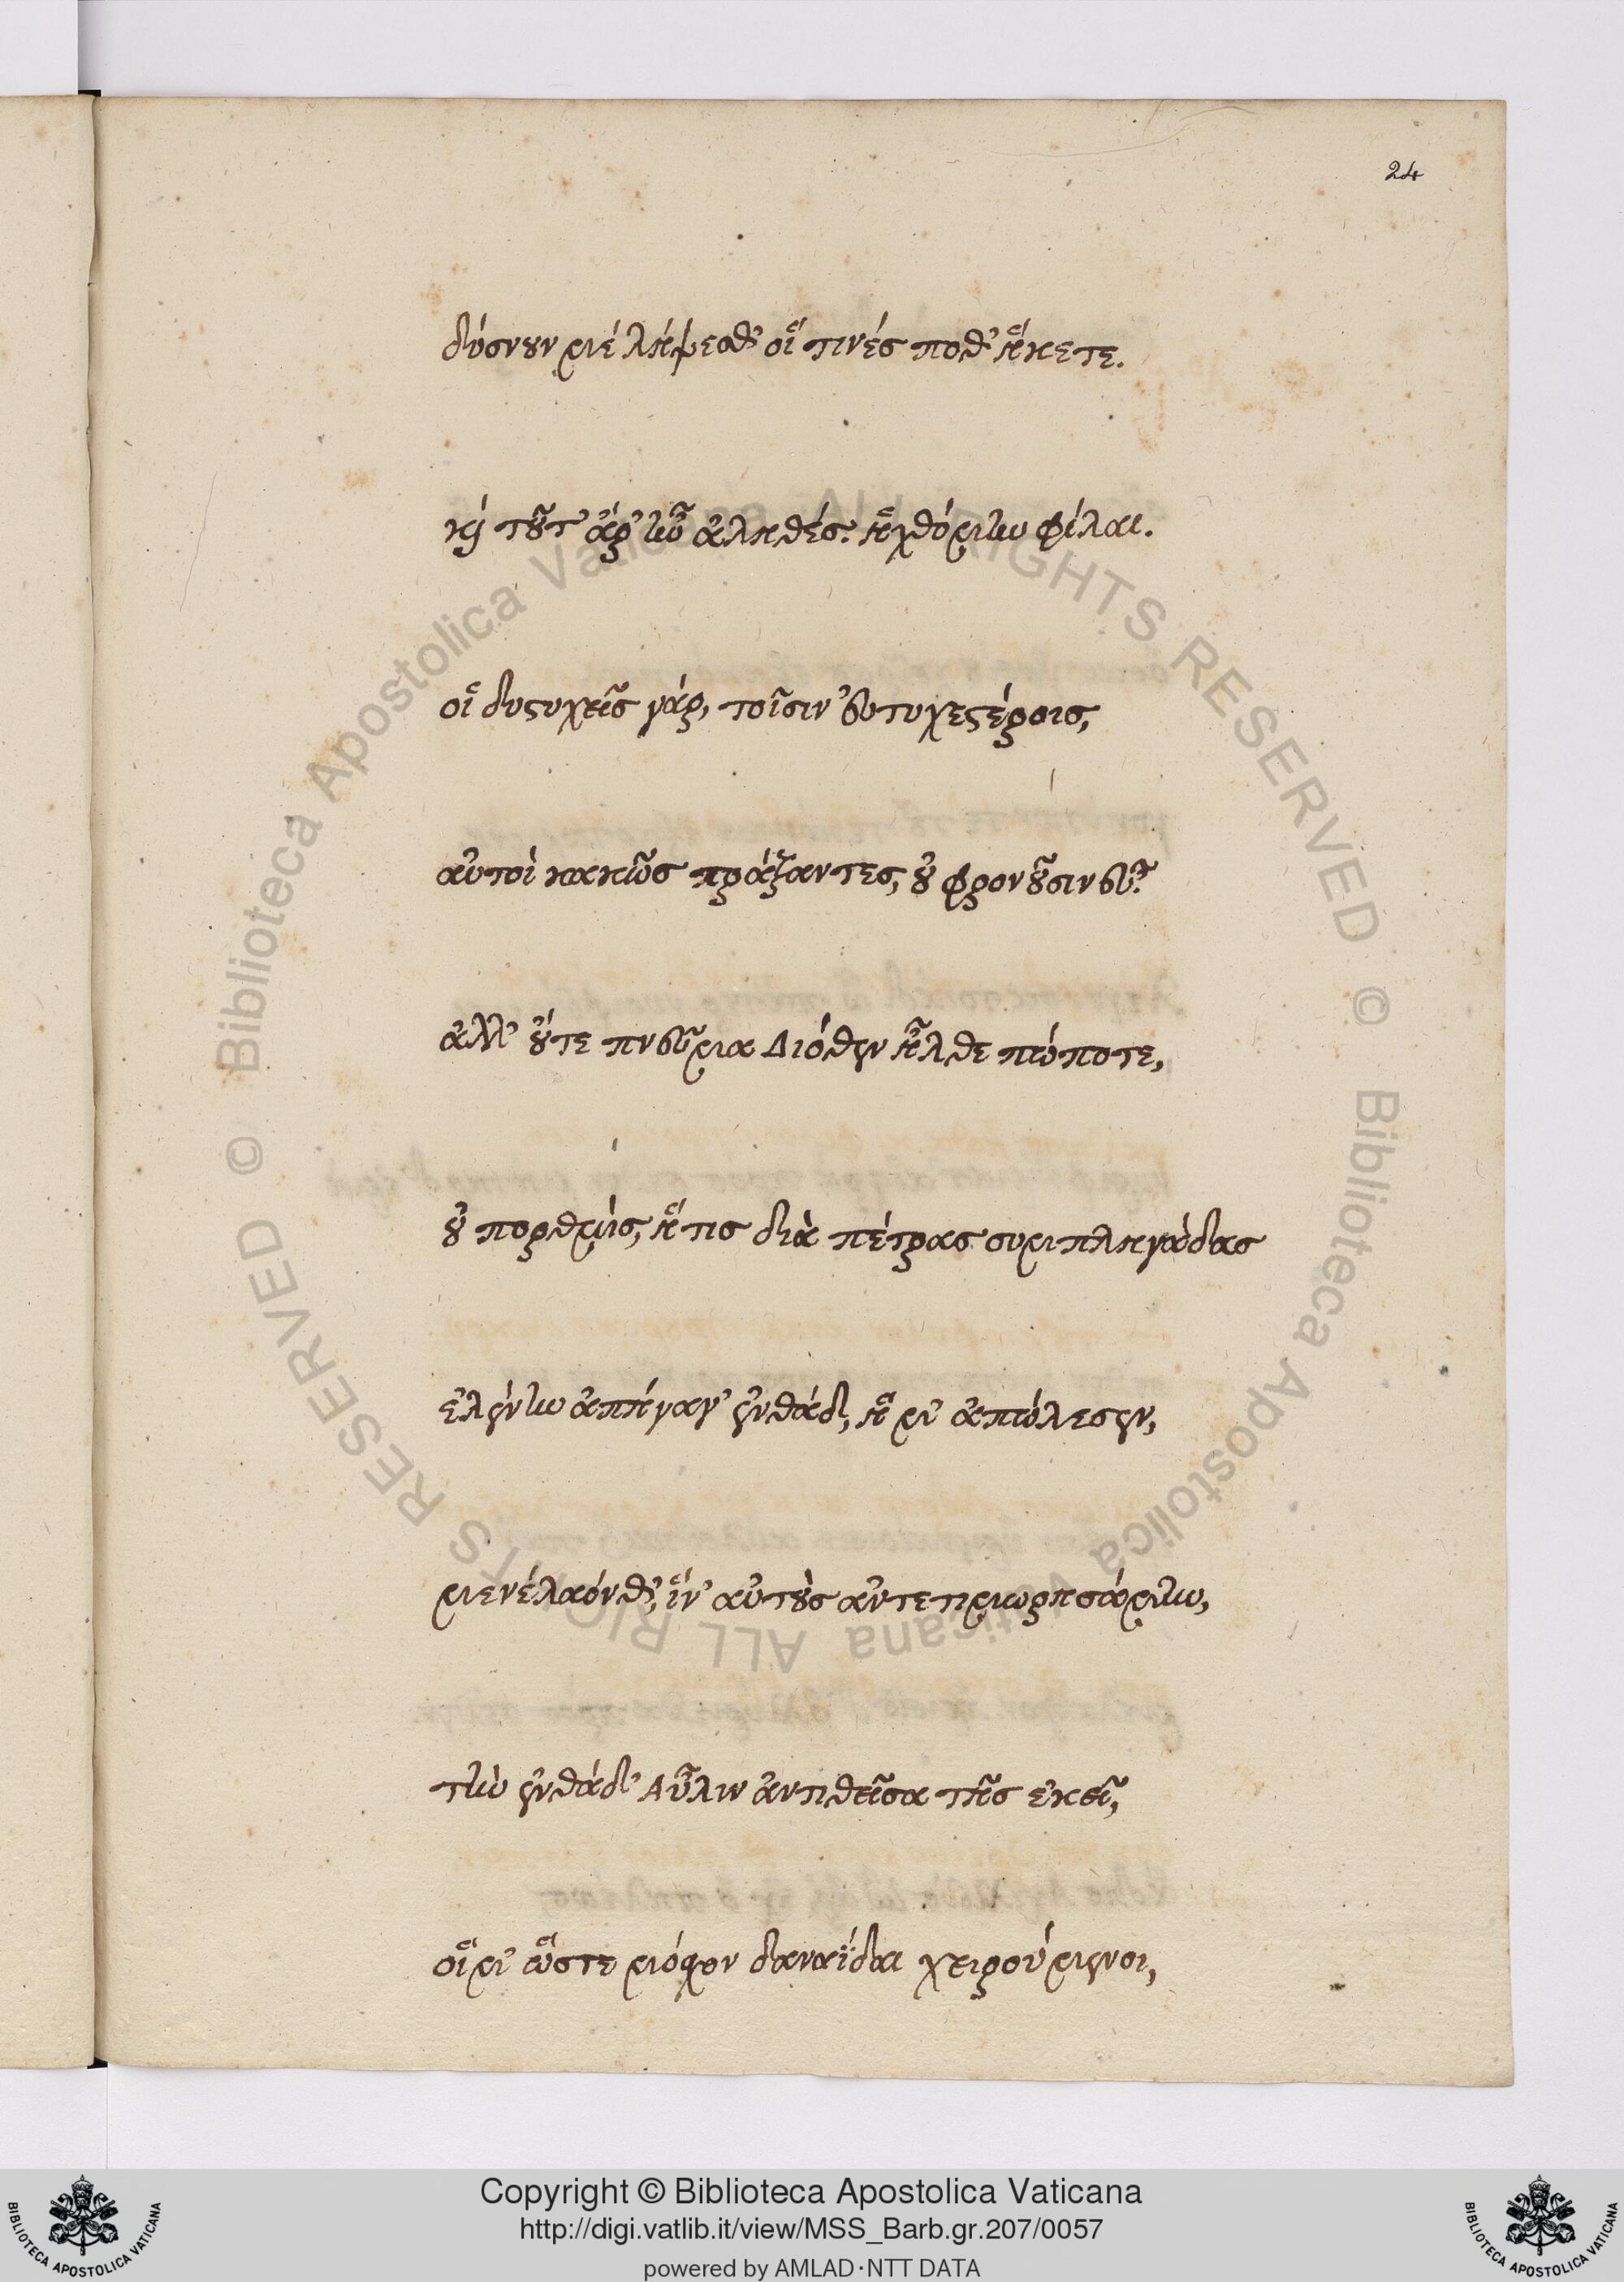 24
δύσνουν μὲ λήψεσθ' οἵ τινές ποθ' ἥκετε.
καὶ τοῦτ' ἄρ' ἦν ἀληθές. ἠχθόμην φίλαι.
οἱ δυστυχεῖς γάρ, τοῖσιν εὐτυχεστέροις,
αὐτοὶ κακῶς πράξαντες, οὐ φρονοῦσιν εὖ.
ἀλλ' οὔτε πνεῦμα Διόθεν ἦλθε πώποτε,
οὐ πορθμίς, ἥτις διὰ πέτρας συμπληγάδας
ἑλένην ἀπήγαγ' ἐνθάδε, ἥ μ' ἀπώλεσεν,
μενέλαόν θ', ἵν' αὐτοὺς ἀντετιμωρησάμην,
τὴν ἐνθάδ' Αὖλιν ἀντιθεῖσα τῆς ἐκεῖ,
οἵ μ' ὥστε μόσχον δαναΐδαι χειρούμενοι,
Copyright © Biblioteca Apostolica Vaticana
http://digi.vatlib.it/view/MSS_Barb.gr.207/0057
powered by AMLAD·NTT DATA
© Biblioteca Apostolica Vaticana ALL RIGHTS RESERVED
© Biblioteca Apostolica Vaticana ALL RIGHTS RESERVED
BIBLIOTECA APOSTOLICA VATICANA
BIBLIOTECA APOSTOLICA VATICANA